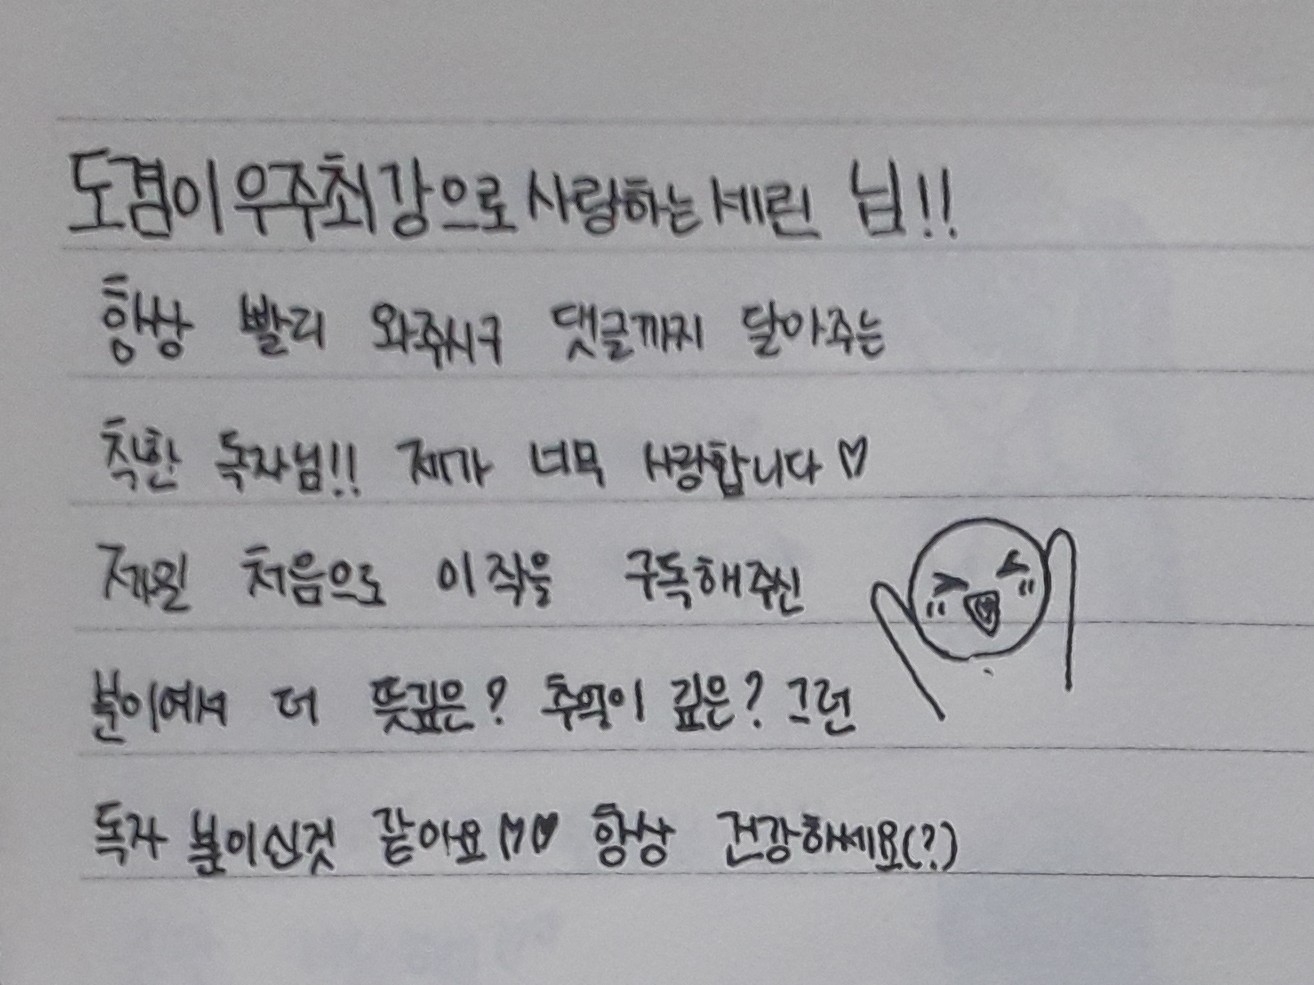 도겸이 우주최강으로 사랑하는 세린 님!!
항상 빨리 와주시구 댓글까지 달아주는
착한 독자님!! 제가 너무 사랑합니다♡
제일 처음으로 이작을 구독해주신
분이여서 더 뜻깊은? 추억이 깊은? 그런
독자 분이신것 같아요♡♥ 항상 건강하세요(?)